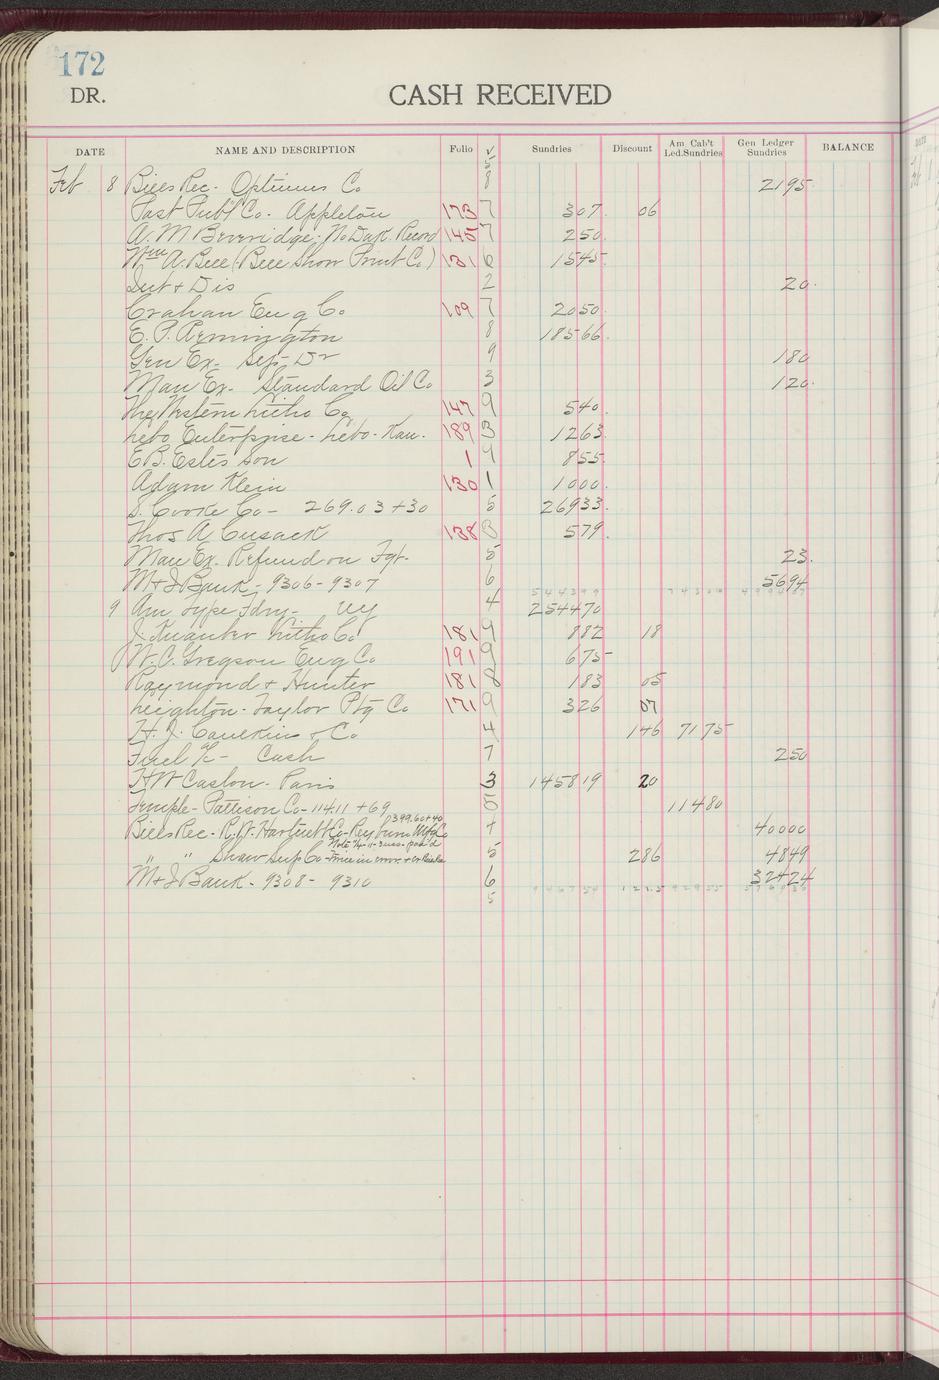 172
DR.
CASH RECEIVED
DATE NAME AND DESCRIPTION Folio √ Sundries Discount Am Cab't Led.Sundries Gen Ledger Sundries BALANCE
5
Feb 8 Bills Rec. Optimus Co 8 2195
Post Pub'l Co. Appleton 173 7 307 06
A. M Beveridge. No Dak. Record 145 7 250
Wm A. Bell (Bell Show Print Co.) 131 6 1545
Int + Dis 2 20
Crahan Eng Co 109 7 2050
E. P. Remington 8 18566
Gen Ex. 9 180
Man Ex. Standard Oil Co 3 120
The Western Litho Co 147 9 540
Lebo Enterprise - Lebo. Kan. 189 3 1263
E B. Estes Son 1 9 855
Adam Klein 130 1 1000
S. Cooke Co - 269.03 + 30 5 26933
Thos A Cusack 138 3 579
Man Ex. Refund on Fgt. 5 23
M + I Bank - 9306 - 9307 6 5694
9 Am Type Fdry - NY 4 254470
J. Knauber Litho Co 181 9 882 18
W. C. Gregson Eng Co 191 9 675
Raymond + Hunter 181 8 183 05
Leighton - Taylor Ptg Co 171 9 326 07
H. J. Caulkins & Co 4 146 7175
Fuel % - Cash 7 250
H W Caslon - Paris 3 145819 20
Temple - Pattison Co - 114.11 + 69 0 11480
399.60 + 40
Bills Rec - R. W. Hartnett Co - Reyburn Mfg Co 7 40000
" " Shaw Sup Co 5 286 4849
M + I Bank - 9308 - 9310 6 32424
5